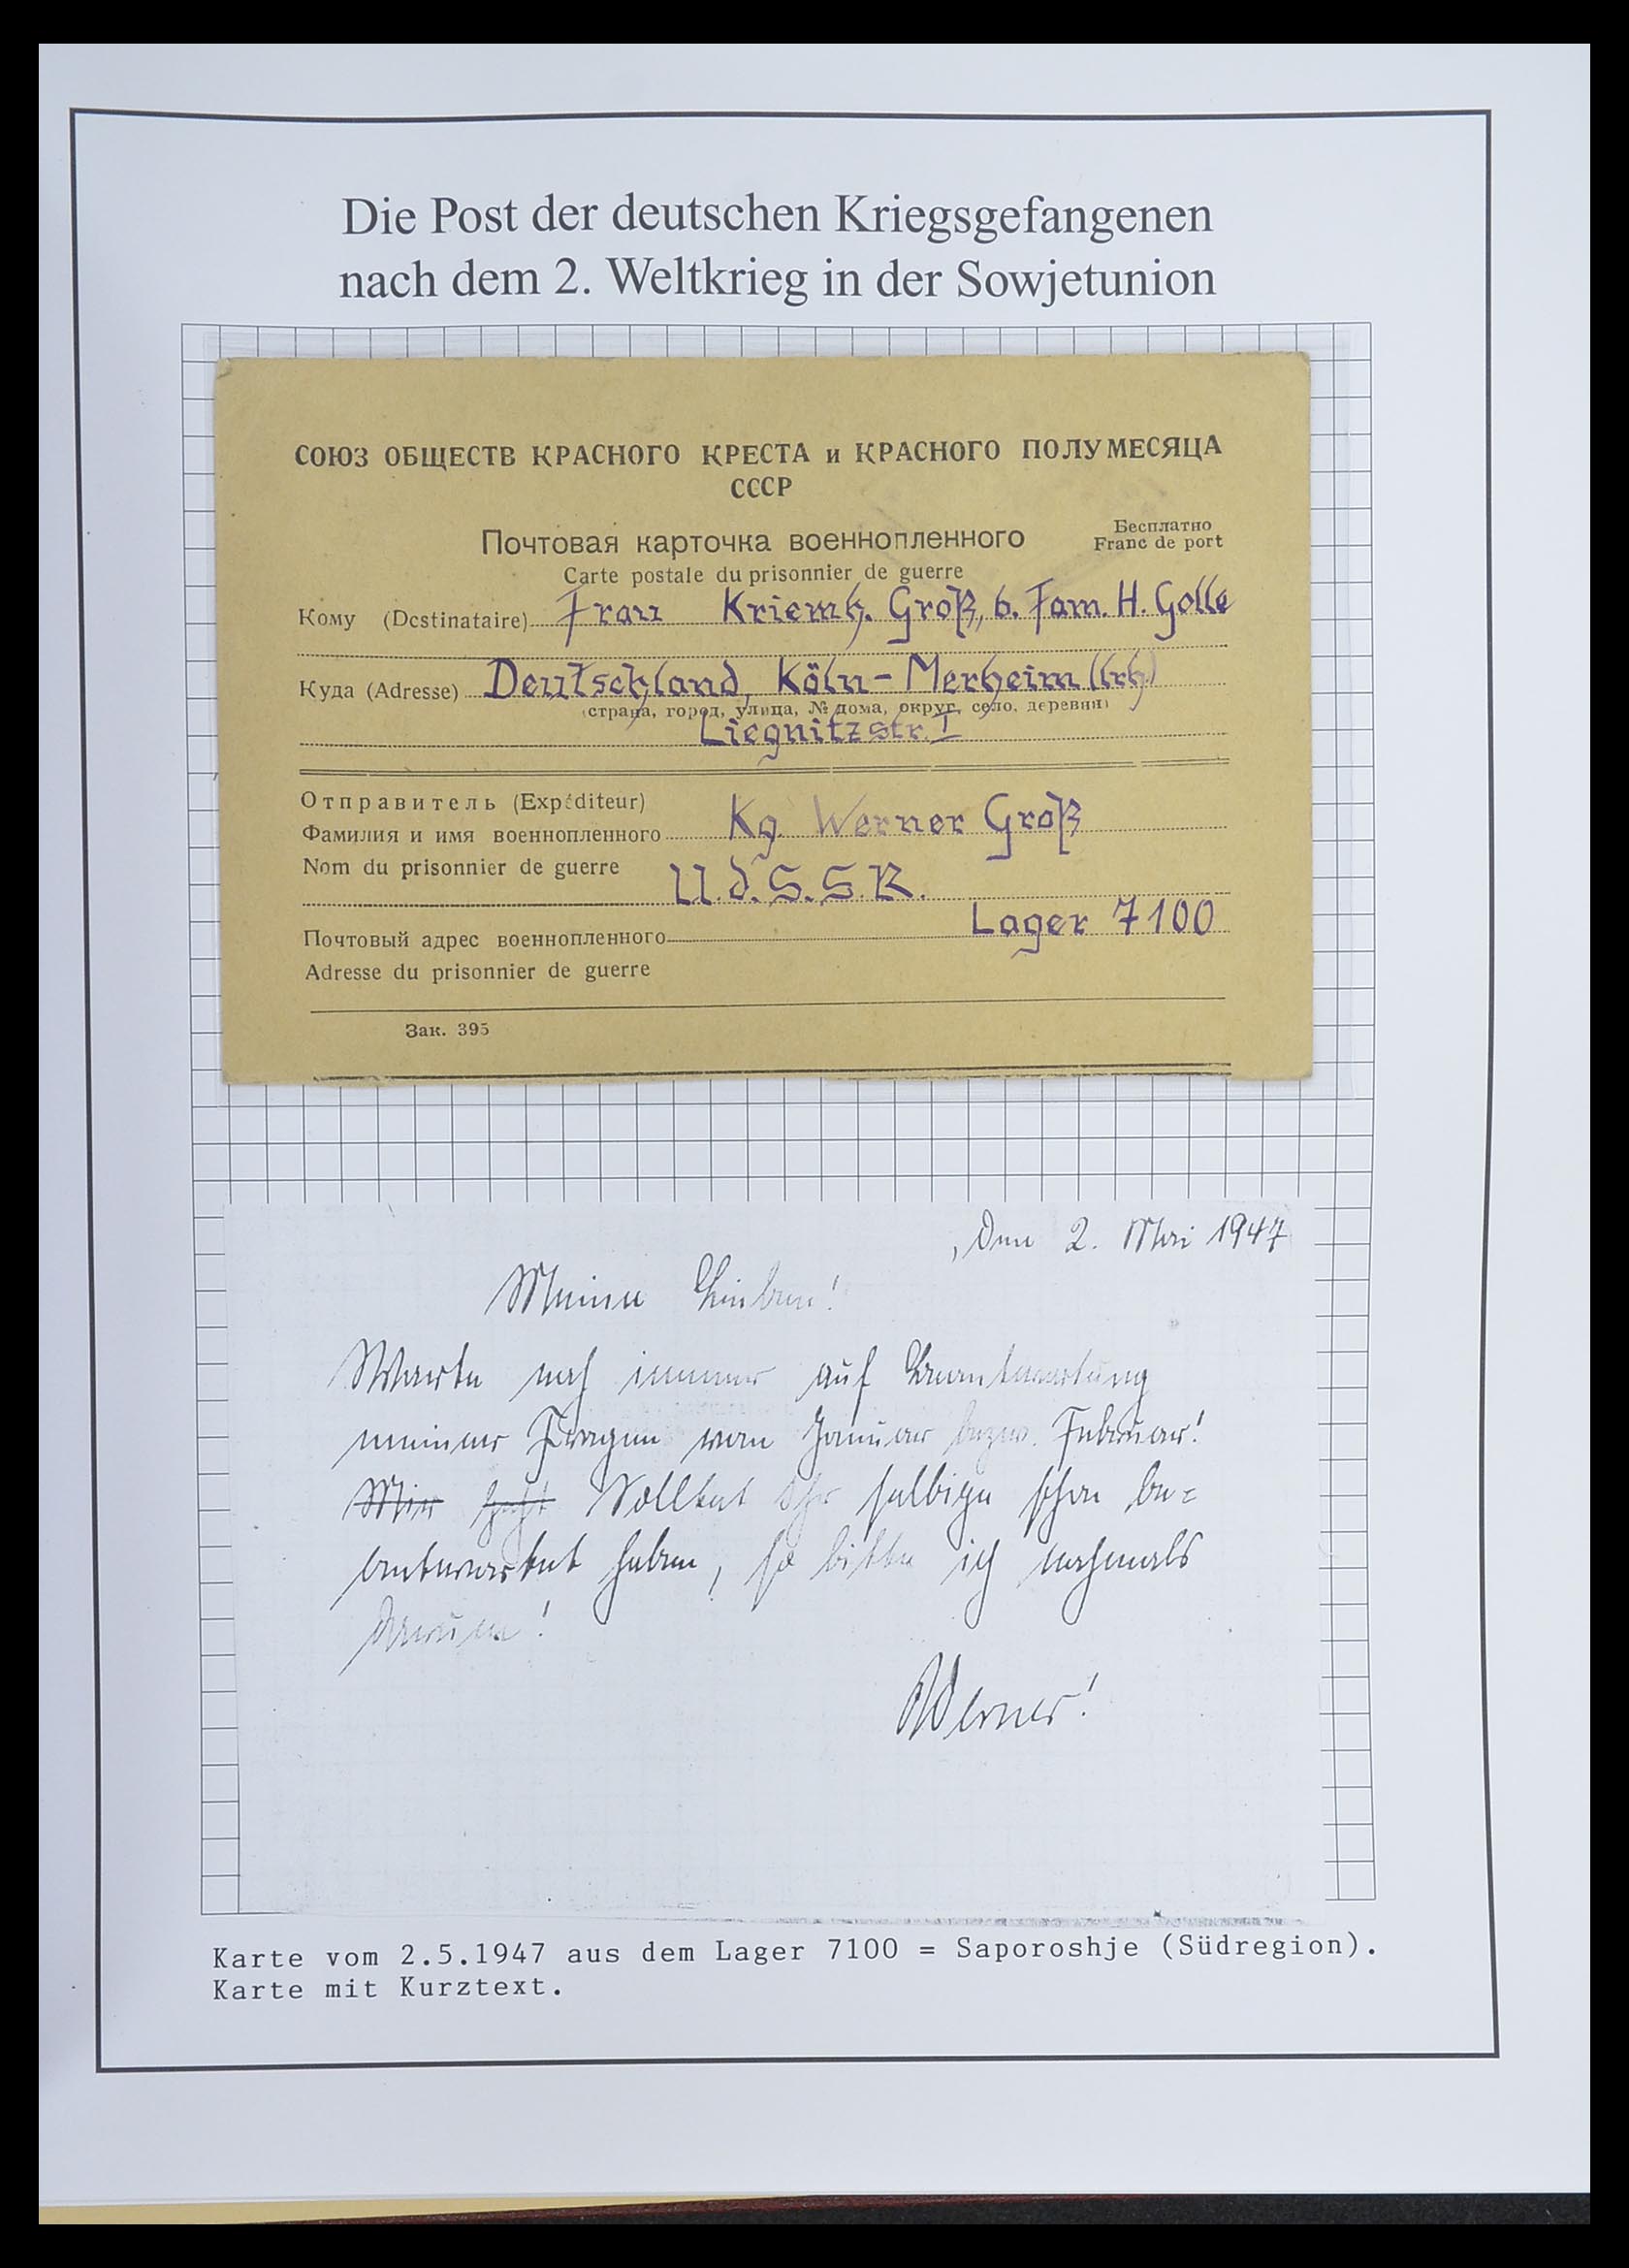 Die Post der deutschen Kriegsgefangenen
nach dem 2. Weltkrieg in der Sowjetunion
СОЮЗ ОБЩЕСТВ КРАСНОГО КРЕСТА и КРАСНОГО ПОЛУМЕСЯЦА
СССР
Почтовая карточка военнопленного
Бесплатно
Franc de port
Carte postale du prisonnier de guerre
Кому (Destinataire) Frau Kriemh. Groß, b. Fam. H. Golle
Куда (Adresse) Deutschland, Köln-Merheim (lrh)
(страна, город, улица, № дома, округ, село, деревня)
Liegnitzstr. I
Отправитель (Expéditeur)
Фамилия и имя военнопленного Kg. Werner Groß
Nom du prisonnier de guerre U.d.S.S.R.
Почтовый адрес военнопленного Lager 7100
Adresse du prisonnier de guerre
Зак. 395
Den 2. Mai 1947
Meine Lieben!
Warte noch immer auf Beantwortung
meiner Fragen von Januar bezw. Februar!
Mir geht Solltet Ihr selbige schon be=
antwortet haben, so bitte ich nochmals
darum!
Werner!
Karte vom 2.5.1947 aus dem Lager 7100 = Saporoshje (Südregion).
Karte mit Kurztext.